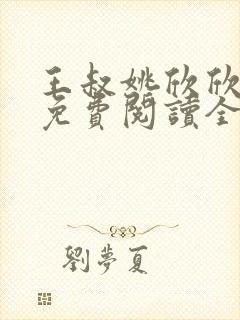 王叔姚欣欣
免費閱讀全
劉夢夏